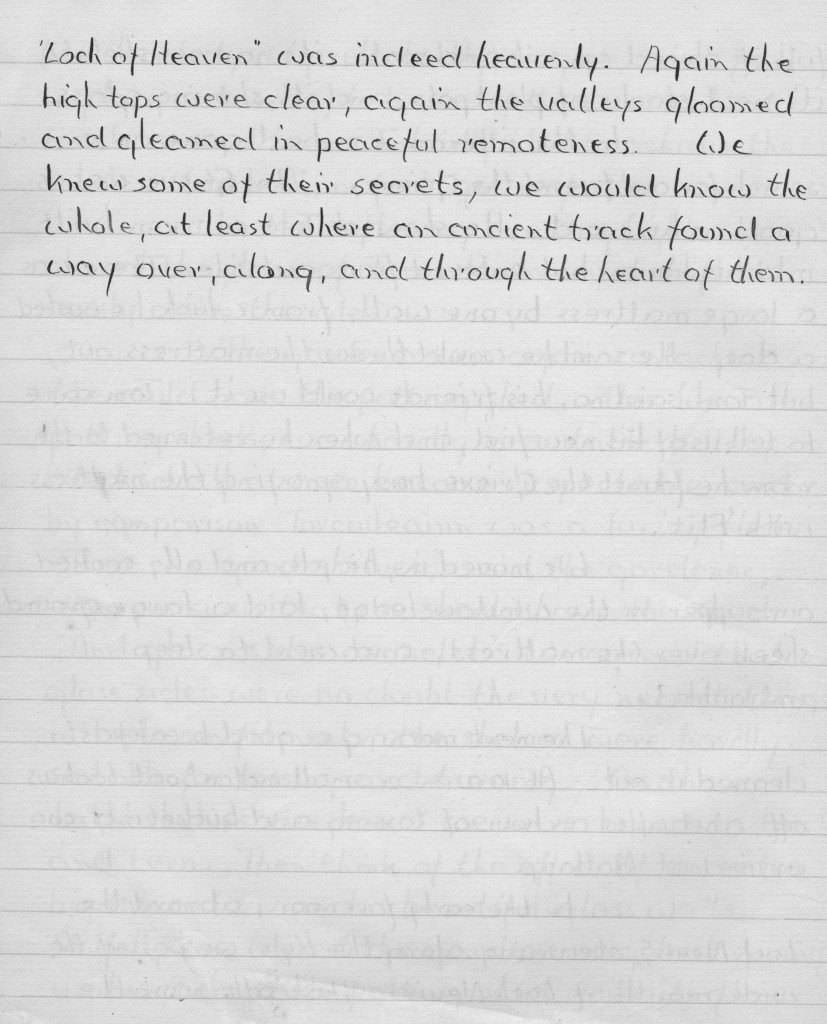 "Loch of Heaven" was indeed heavenly. Again the
high tops were clear, again the valleys gloomed
and gleamed in peaceful remoteness. We
knew some of their secrets, we would know the
whole, at least where an ancient track found a
way over, along, and through the heart of them.